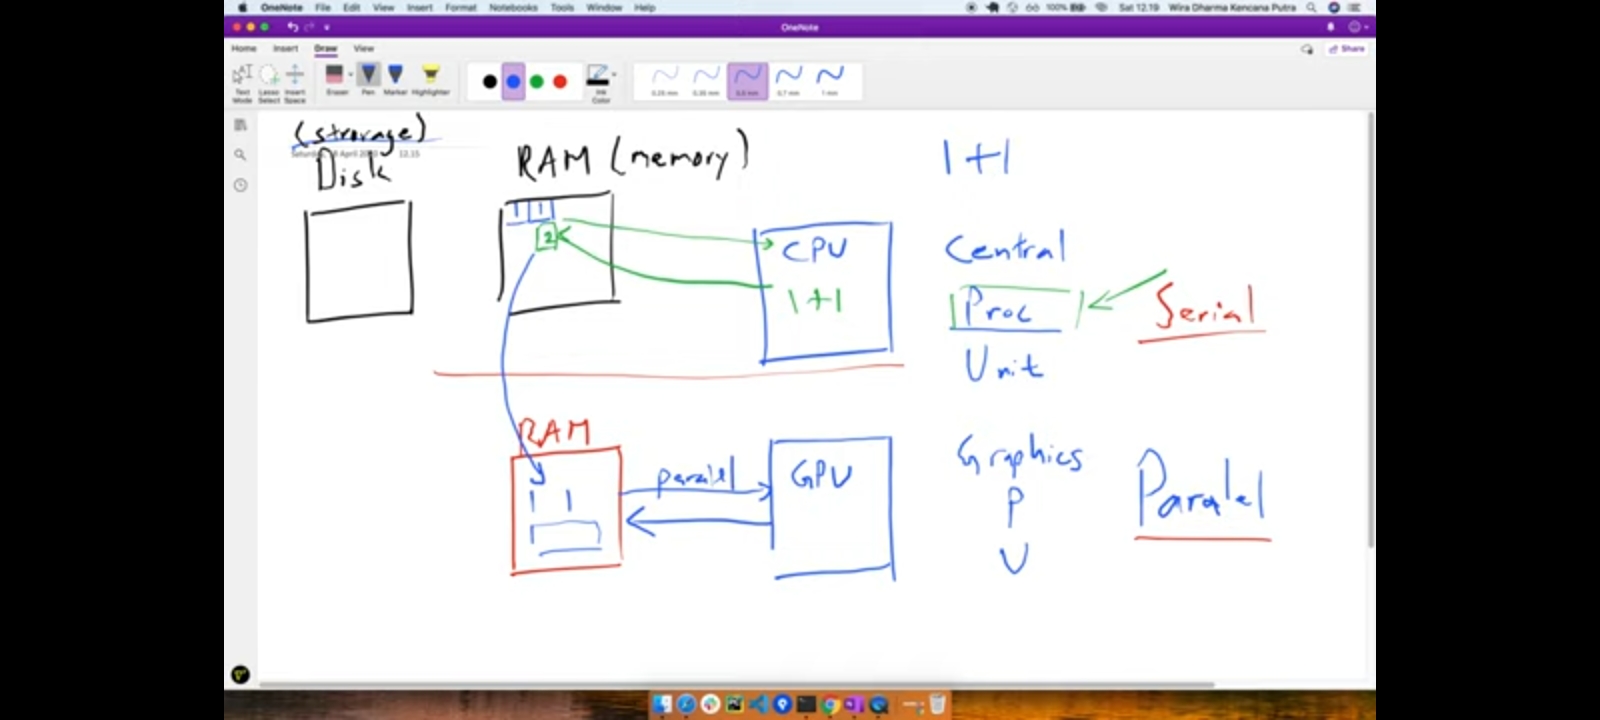 OneNote File Edit View Insert Format Notebooks Tools Window Help 100% Sat 12.19 Wira Dharma Kencana Putra
OneNote
Home Insert Draw View Share
Text Mode Lasso Select Insert Space Eraser Pen Marker Highlighter Ink Color 0.25 mm 0.35 mm 0.5 mm 0.7 mm 1 mm
(strorage)
Saturday, April 12.15
Disk
RAM (memory)
1+1
1 1
2
CPU
1+1
Central
Proc
Unit
Serial
RAM
1 1
paralel
GPU
Graphics
P
U
Paralel